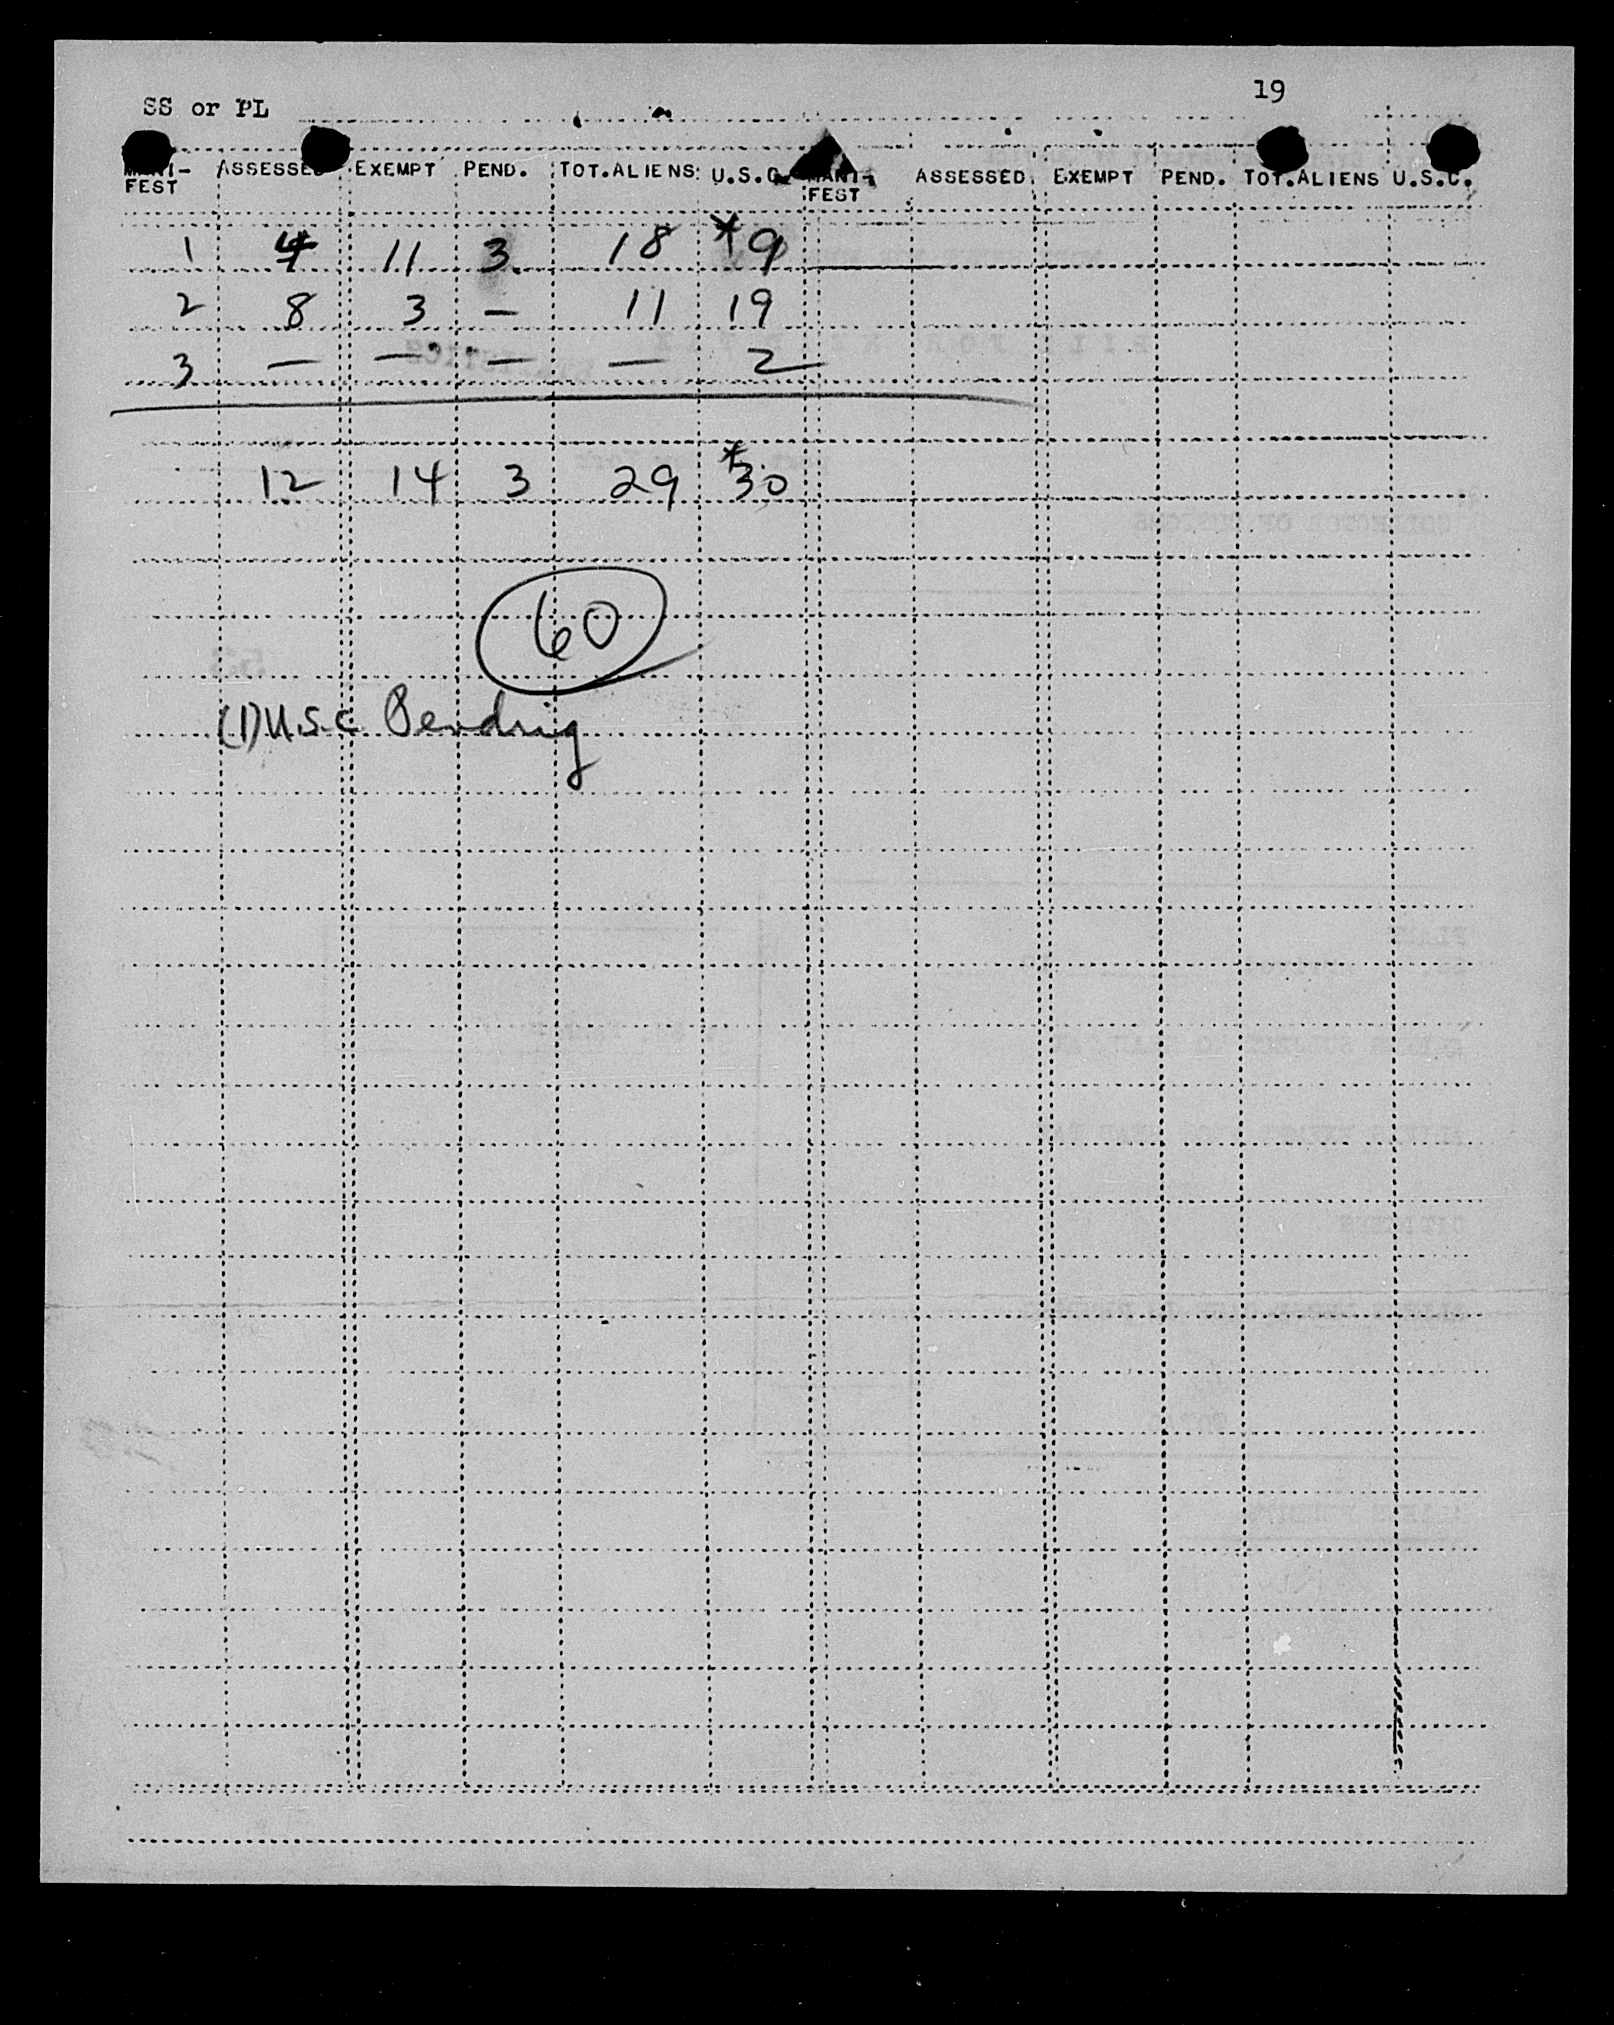 19
SS or PL
MANI-FEST ASSESSED EXEMPT PEND. TOT.ALIENS U.S.C. MANI-FEST ASSESSED EXEMPT PEND. TOT.ALIENS U.S.C.
1 4 11 3 18 *9
2 8 3 — 11 19
3 — — — — 2
12 14 3 29 *30
60
(1) U.S.C. Pending